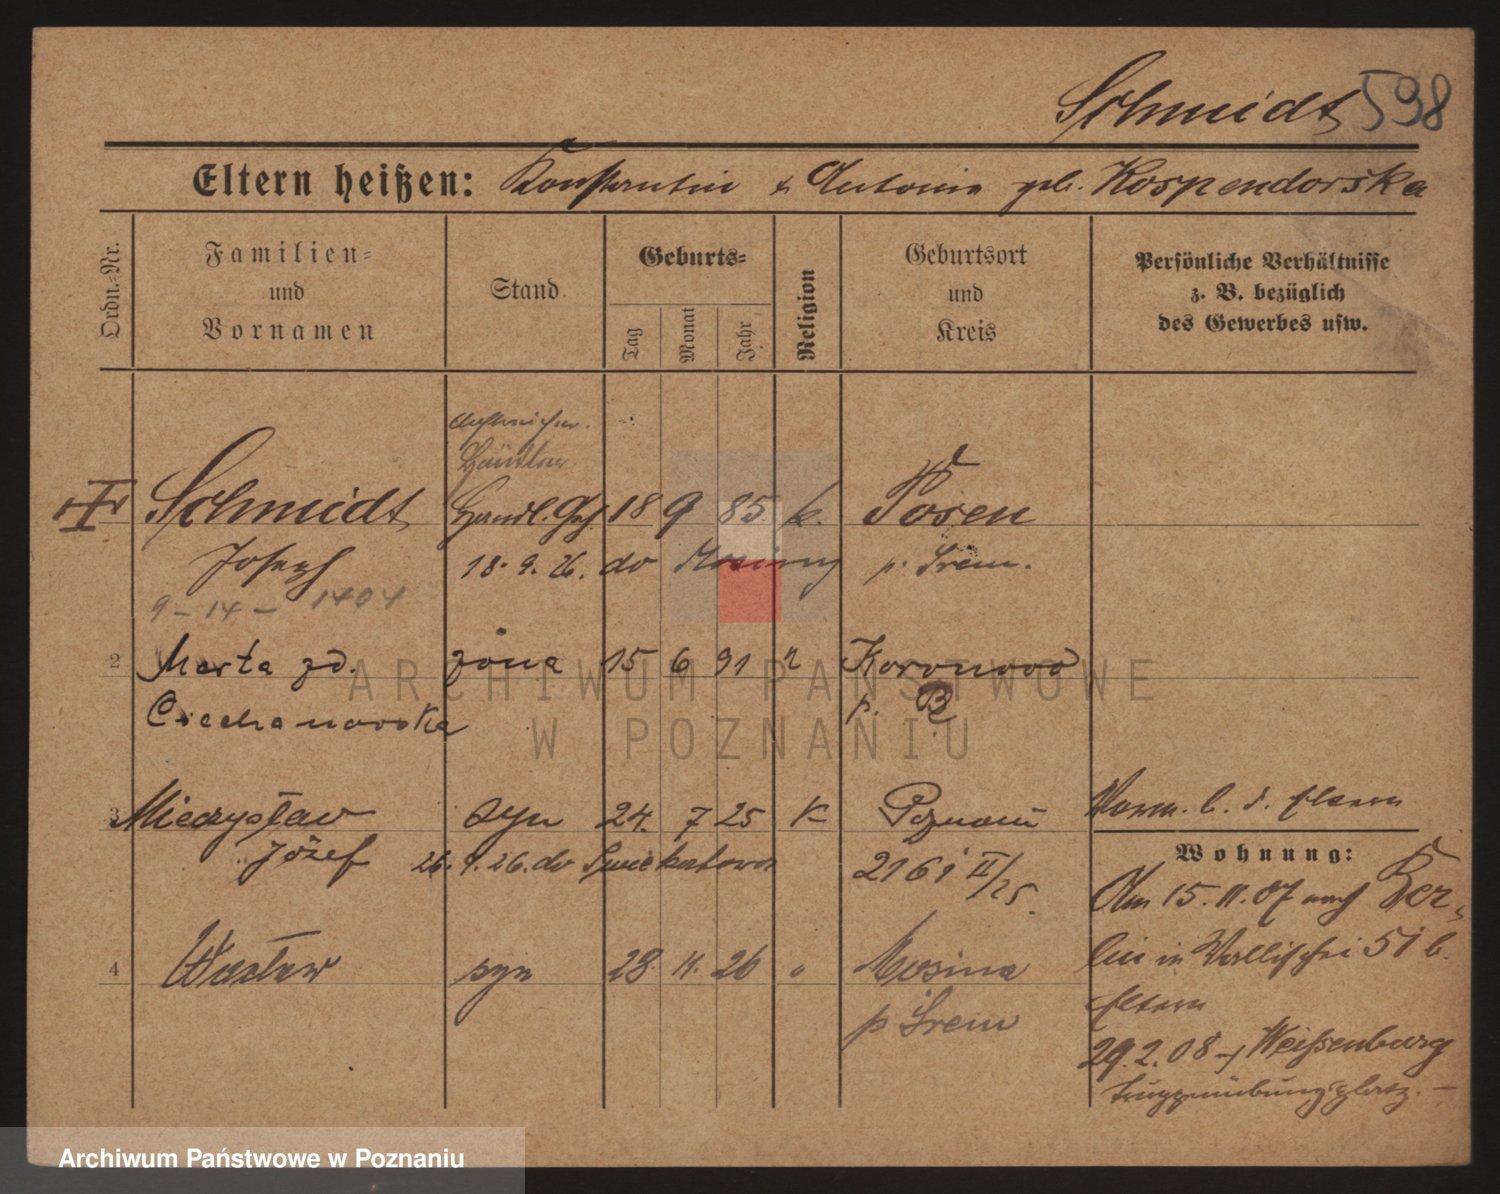 Schmidt 598
Eltern heißen: Konstantin & Antonia geb. Kospendorska
Ordn.-Nr.
Familien-
und
Vornamen
Stand
Geburts-
Tag
Monat
Jahr
Religion
Geburtsort
und
Kreis
Persönliche Verhältnisse
z. B. bezüglich
des Gewerbes usw.
Händler
Schmidt Handl. Geh. 18 9 85 k. Posen
Joseph 18. 9. 26. do Mosiny p. Śrem.
9 - 14 - 1404
2 Marta zd. żona 15 6 91 Koronowo
Ciechanowska p. B
3 Mieczysław syn 24. 7 25 K Poznań
Józef 26. 1. 26. do 2161 II/25.
4 Wacław syn 28. 11. 26 " Mosina
p Śrem
Vorm. b. d. Eltern
Wohnung:
Am 15. 11. 07 nach Ber-
lin in Wallischei 51 b.
Eltern
29. 2. 08 Weissenburg
Truppenübungsplatz. -
ARCHIWUM PAŃSTWOWE
W POZNANIU
Archiwum Państwowe w Poznaniu